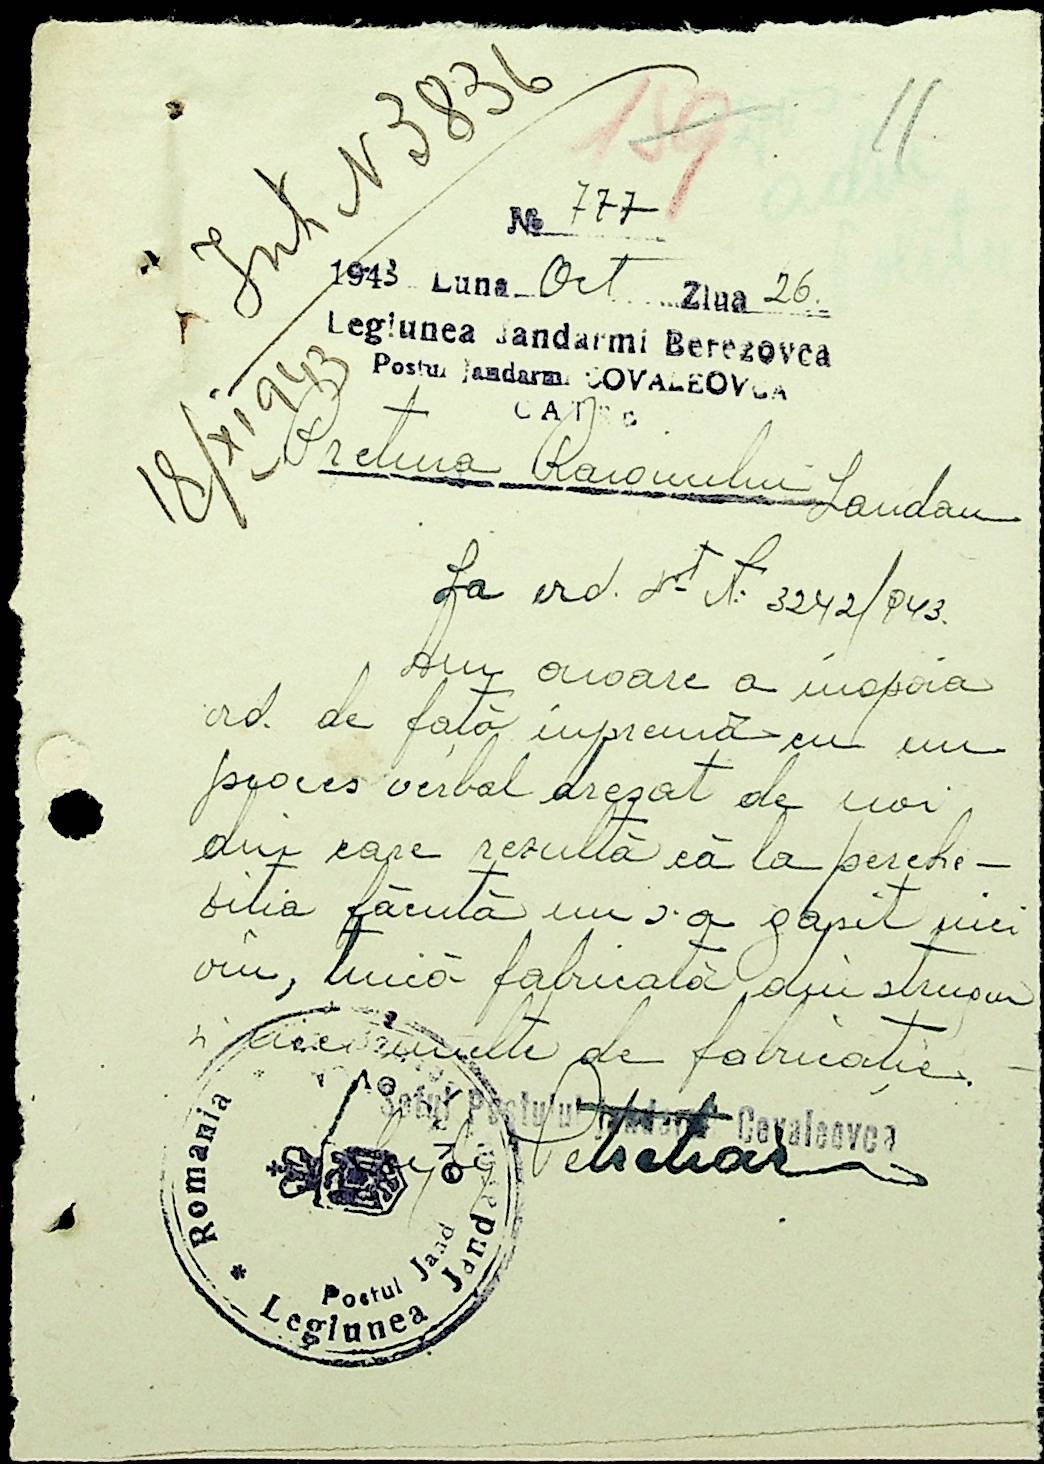 Int N 3836
18/XI 1943
159
11
№ 777
1943 Luna Oct Ziua 26.
Legiunea Jandarmi Berezovca
Postul Jandarmi COVALEOVCA
CATRE
Pretura Raionului Landau
La ord. Nr. 3242/943.
Am onoare a inapoia
ord. de față inpreună cu un
proces verbal dresat de noi
din care rezultă că la perche-
sitia făcută nu s-a gasit nici
vin, tuică fabricată din struguri
și nici unelte de fabricație.
Seful Postului Jandarmi Covaleovca
Romania
Legiunea Jand
Postul Jand